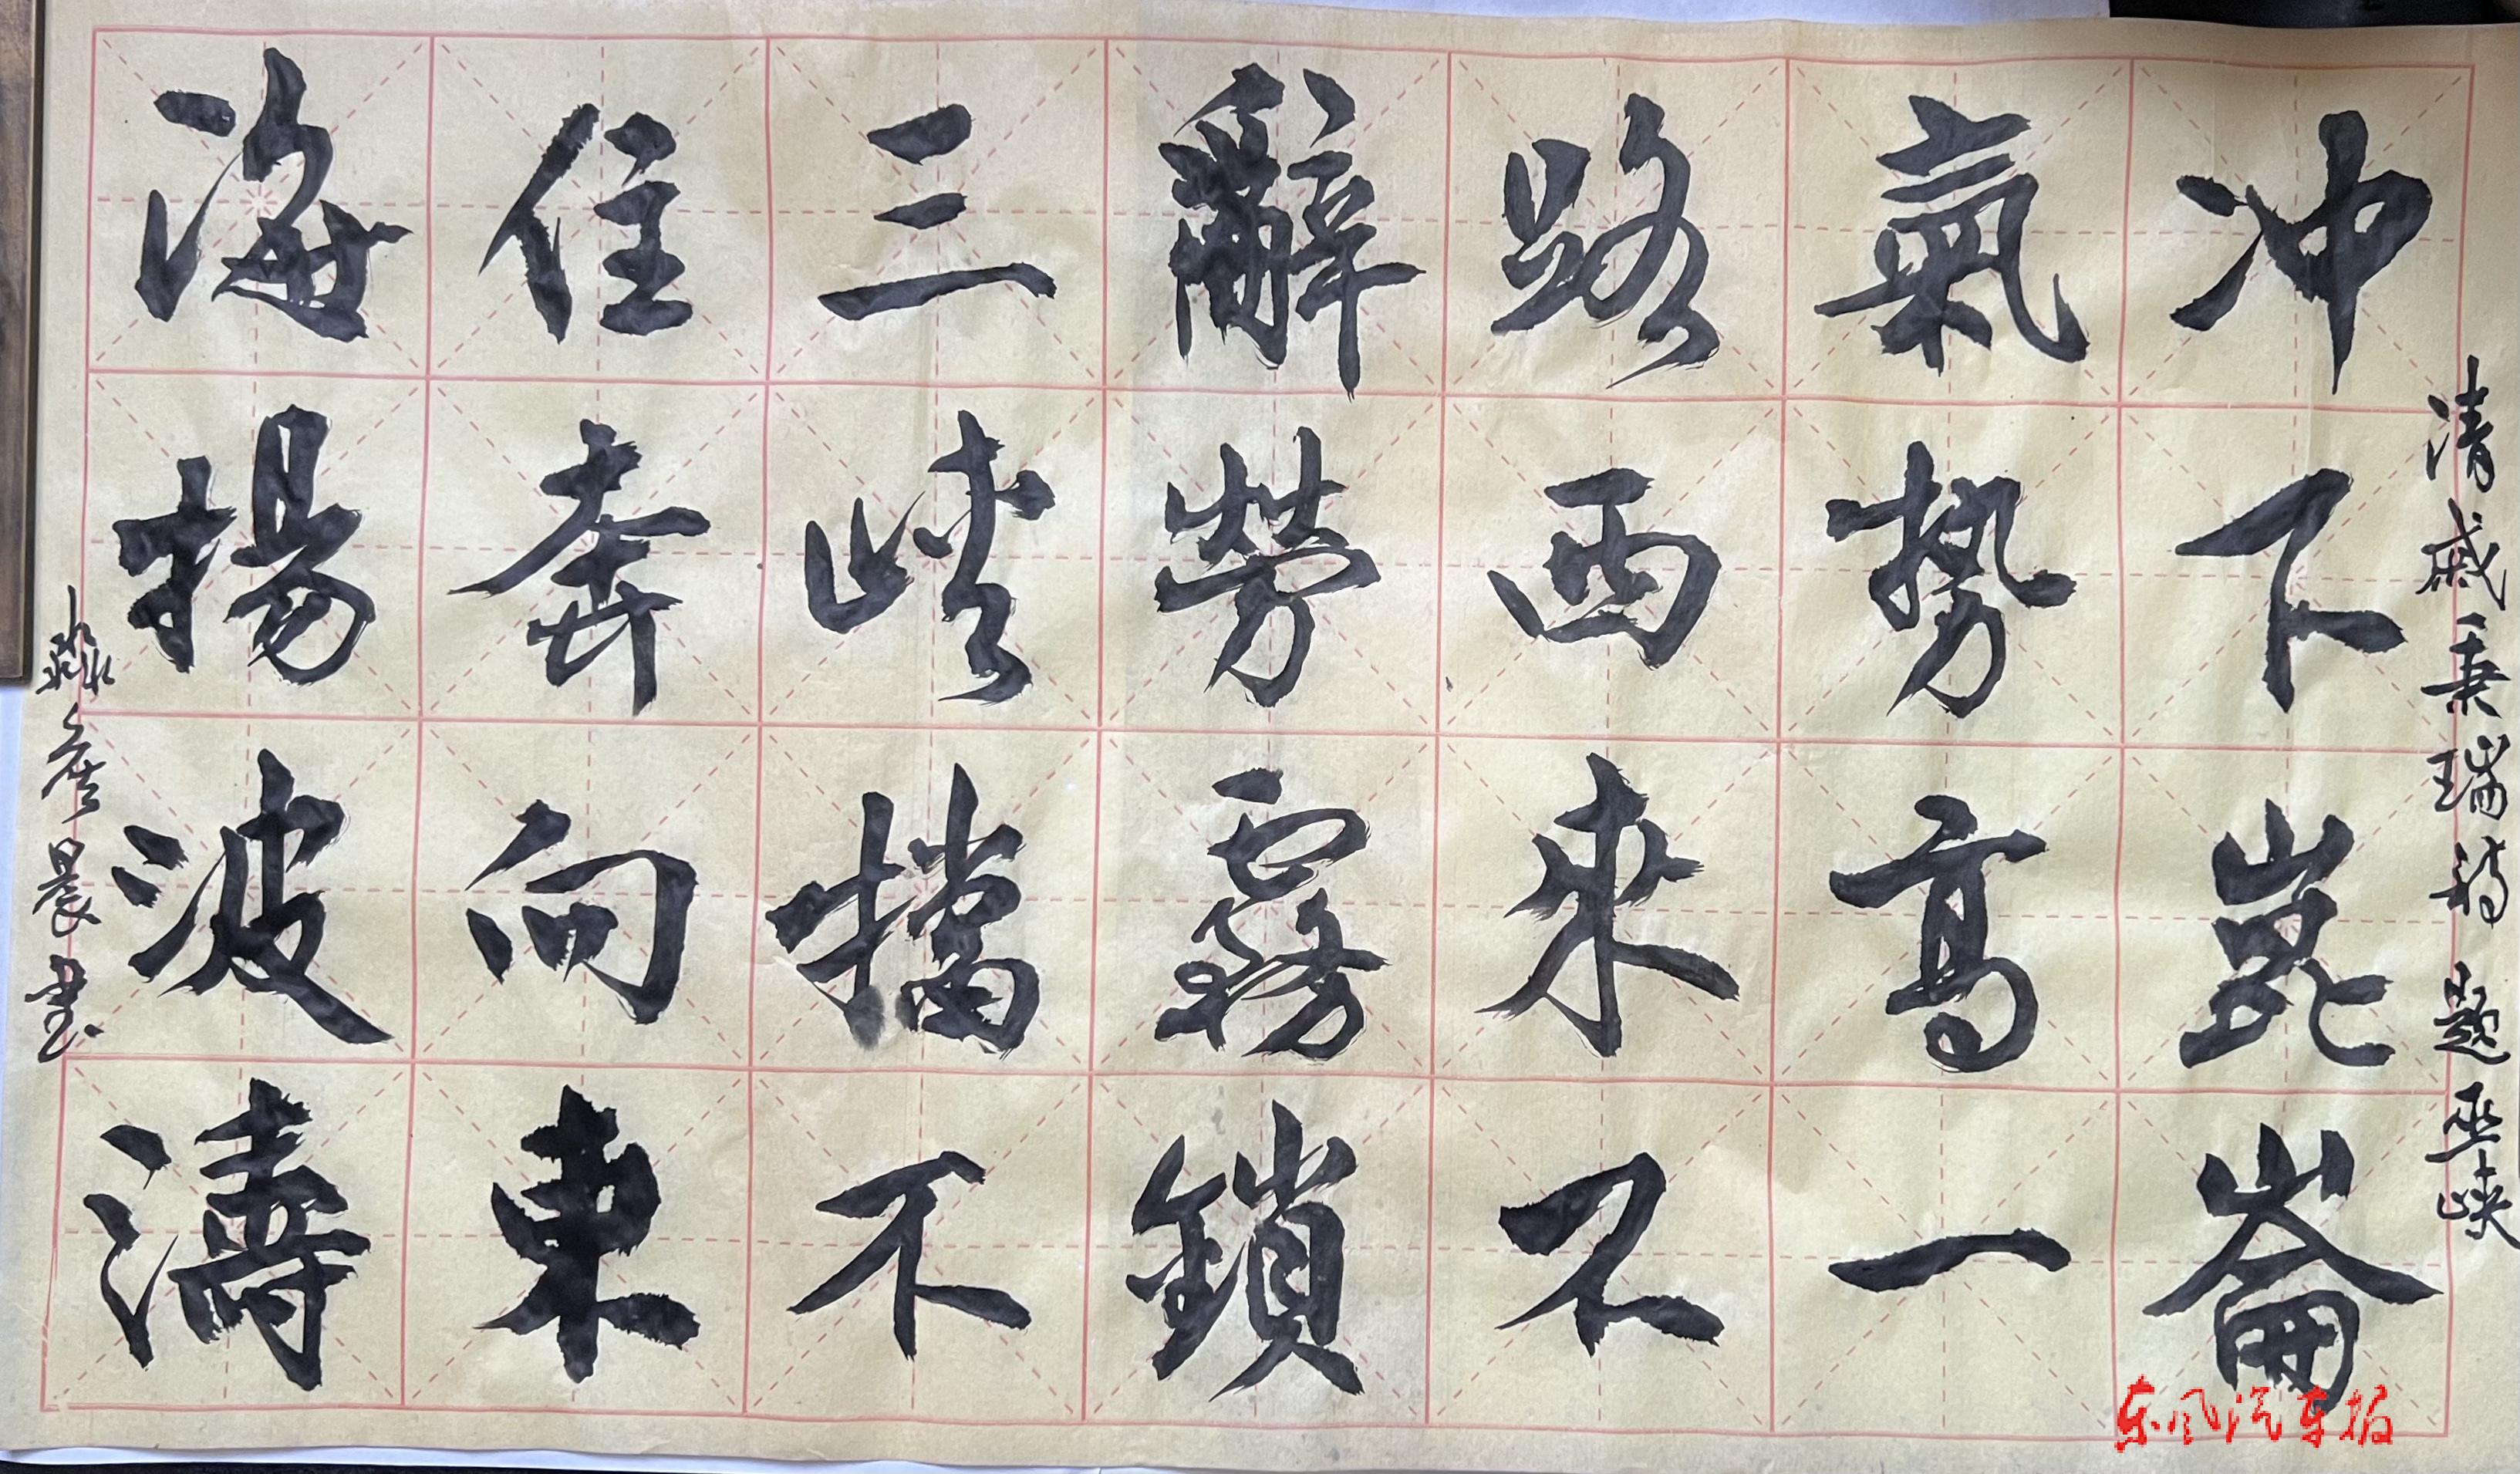 清戚秉瑞诗 题巫峡
冲下崑崙
氣勢高一
路西來不
辭勞霧鎖
三峽擋不
住奔向東
海揚波濤
淼 晨書
东风汽车报